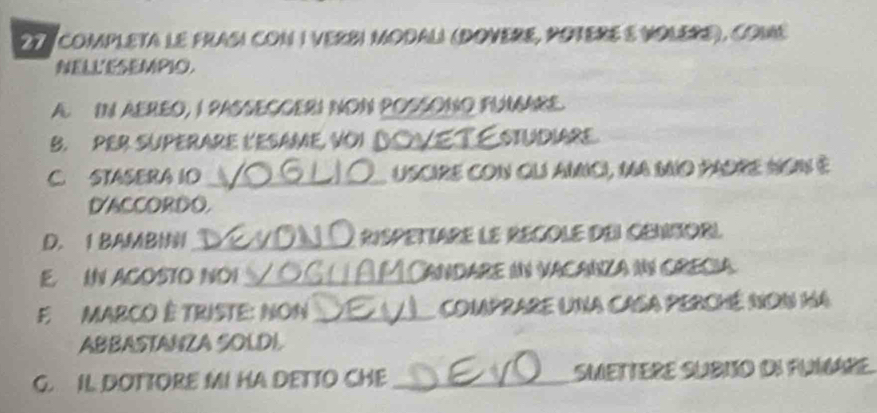 27 COMPLETA LE FRASI CON I VERBI MODALI (DOVERE, POTERE E VOLERE), COME
NELL'ESEMPIO.
A. IN AEREO, I PASSEGGERI NON POSSONO FUMARE.
B. PER SUPERARE L'ESAME, VOI DOVETE STUDIARE.
C. STASERA IO VOGLIO USCIRE CON GLI AMICI, MA MIO PADRE NON È
D'ACCORDO.
D. I BAMBINI DEVONO RISPETTARE LE REGOLE DEI GENITORI.
E. IN AGOSTO NOI VOGLIAMO ANDARE IN VACANZA IN GRECIA.
F. MARCO È TRISTE: NON DEVI COMPRARE UNA CASA PERCHÉ NON HA
ABBASTANZA SOLDI.
G. IL DOTTORE MI HA DETTO CHE DEVO SMETTERE SUBITO DI FUMARE.